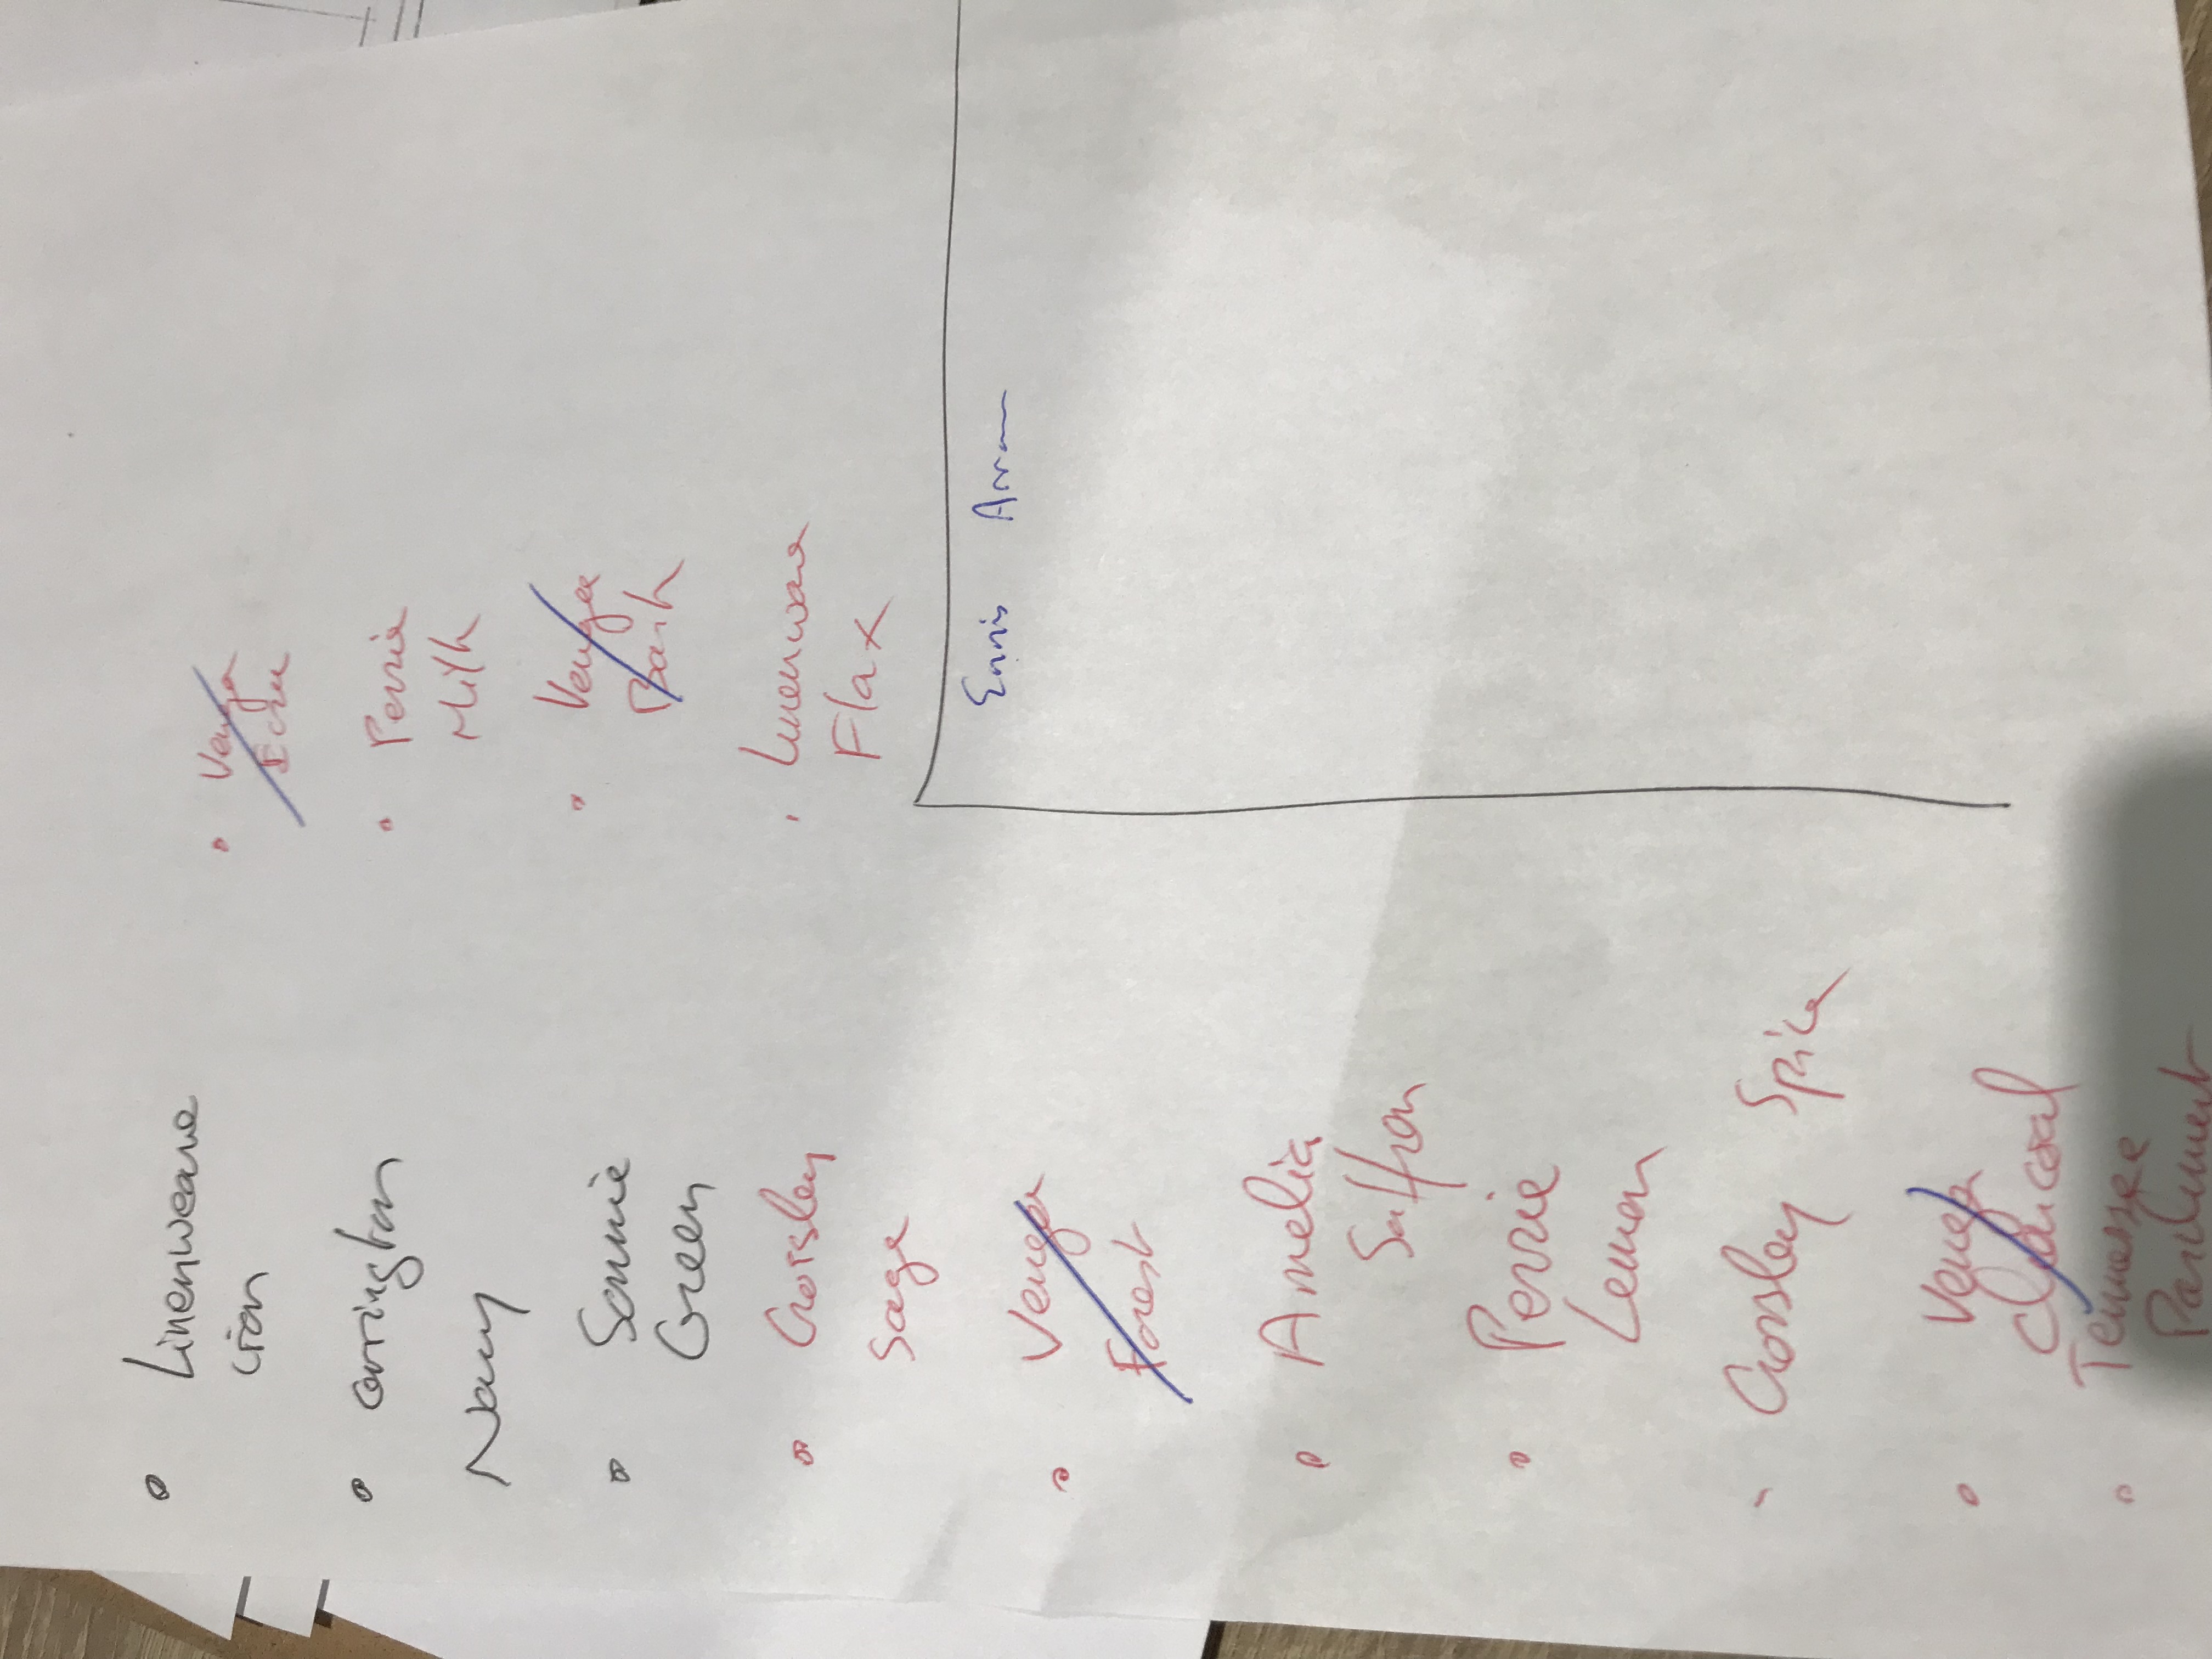 Linenweave
cion
orrington
Navy
Sonnie
Green
Crossley
Sage
Venga
Forest
Amelia
Saffron
Perrie
Lemon
Crossley Spice
Venga
Charcoal
Tennessee
Parchment
Venga
Ecru
Perrie
Milk
Venga
Bark
Linenweave
Flax
Ennis Arran